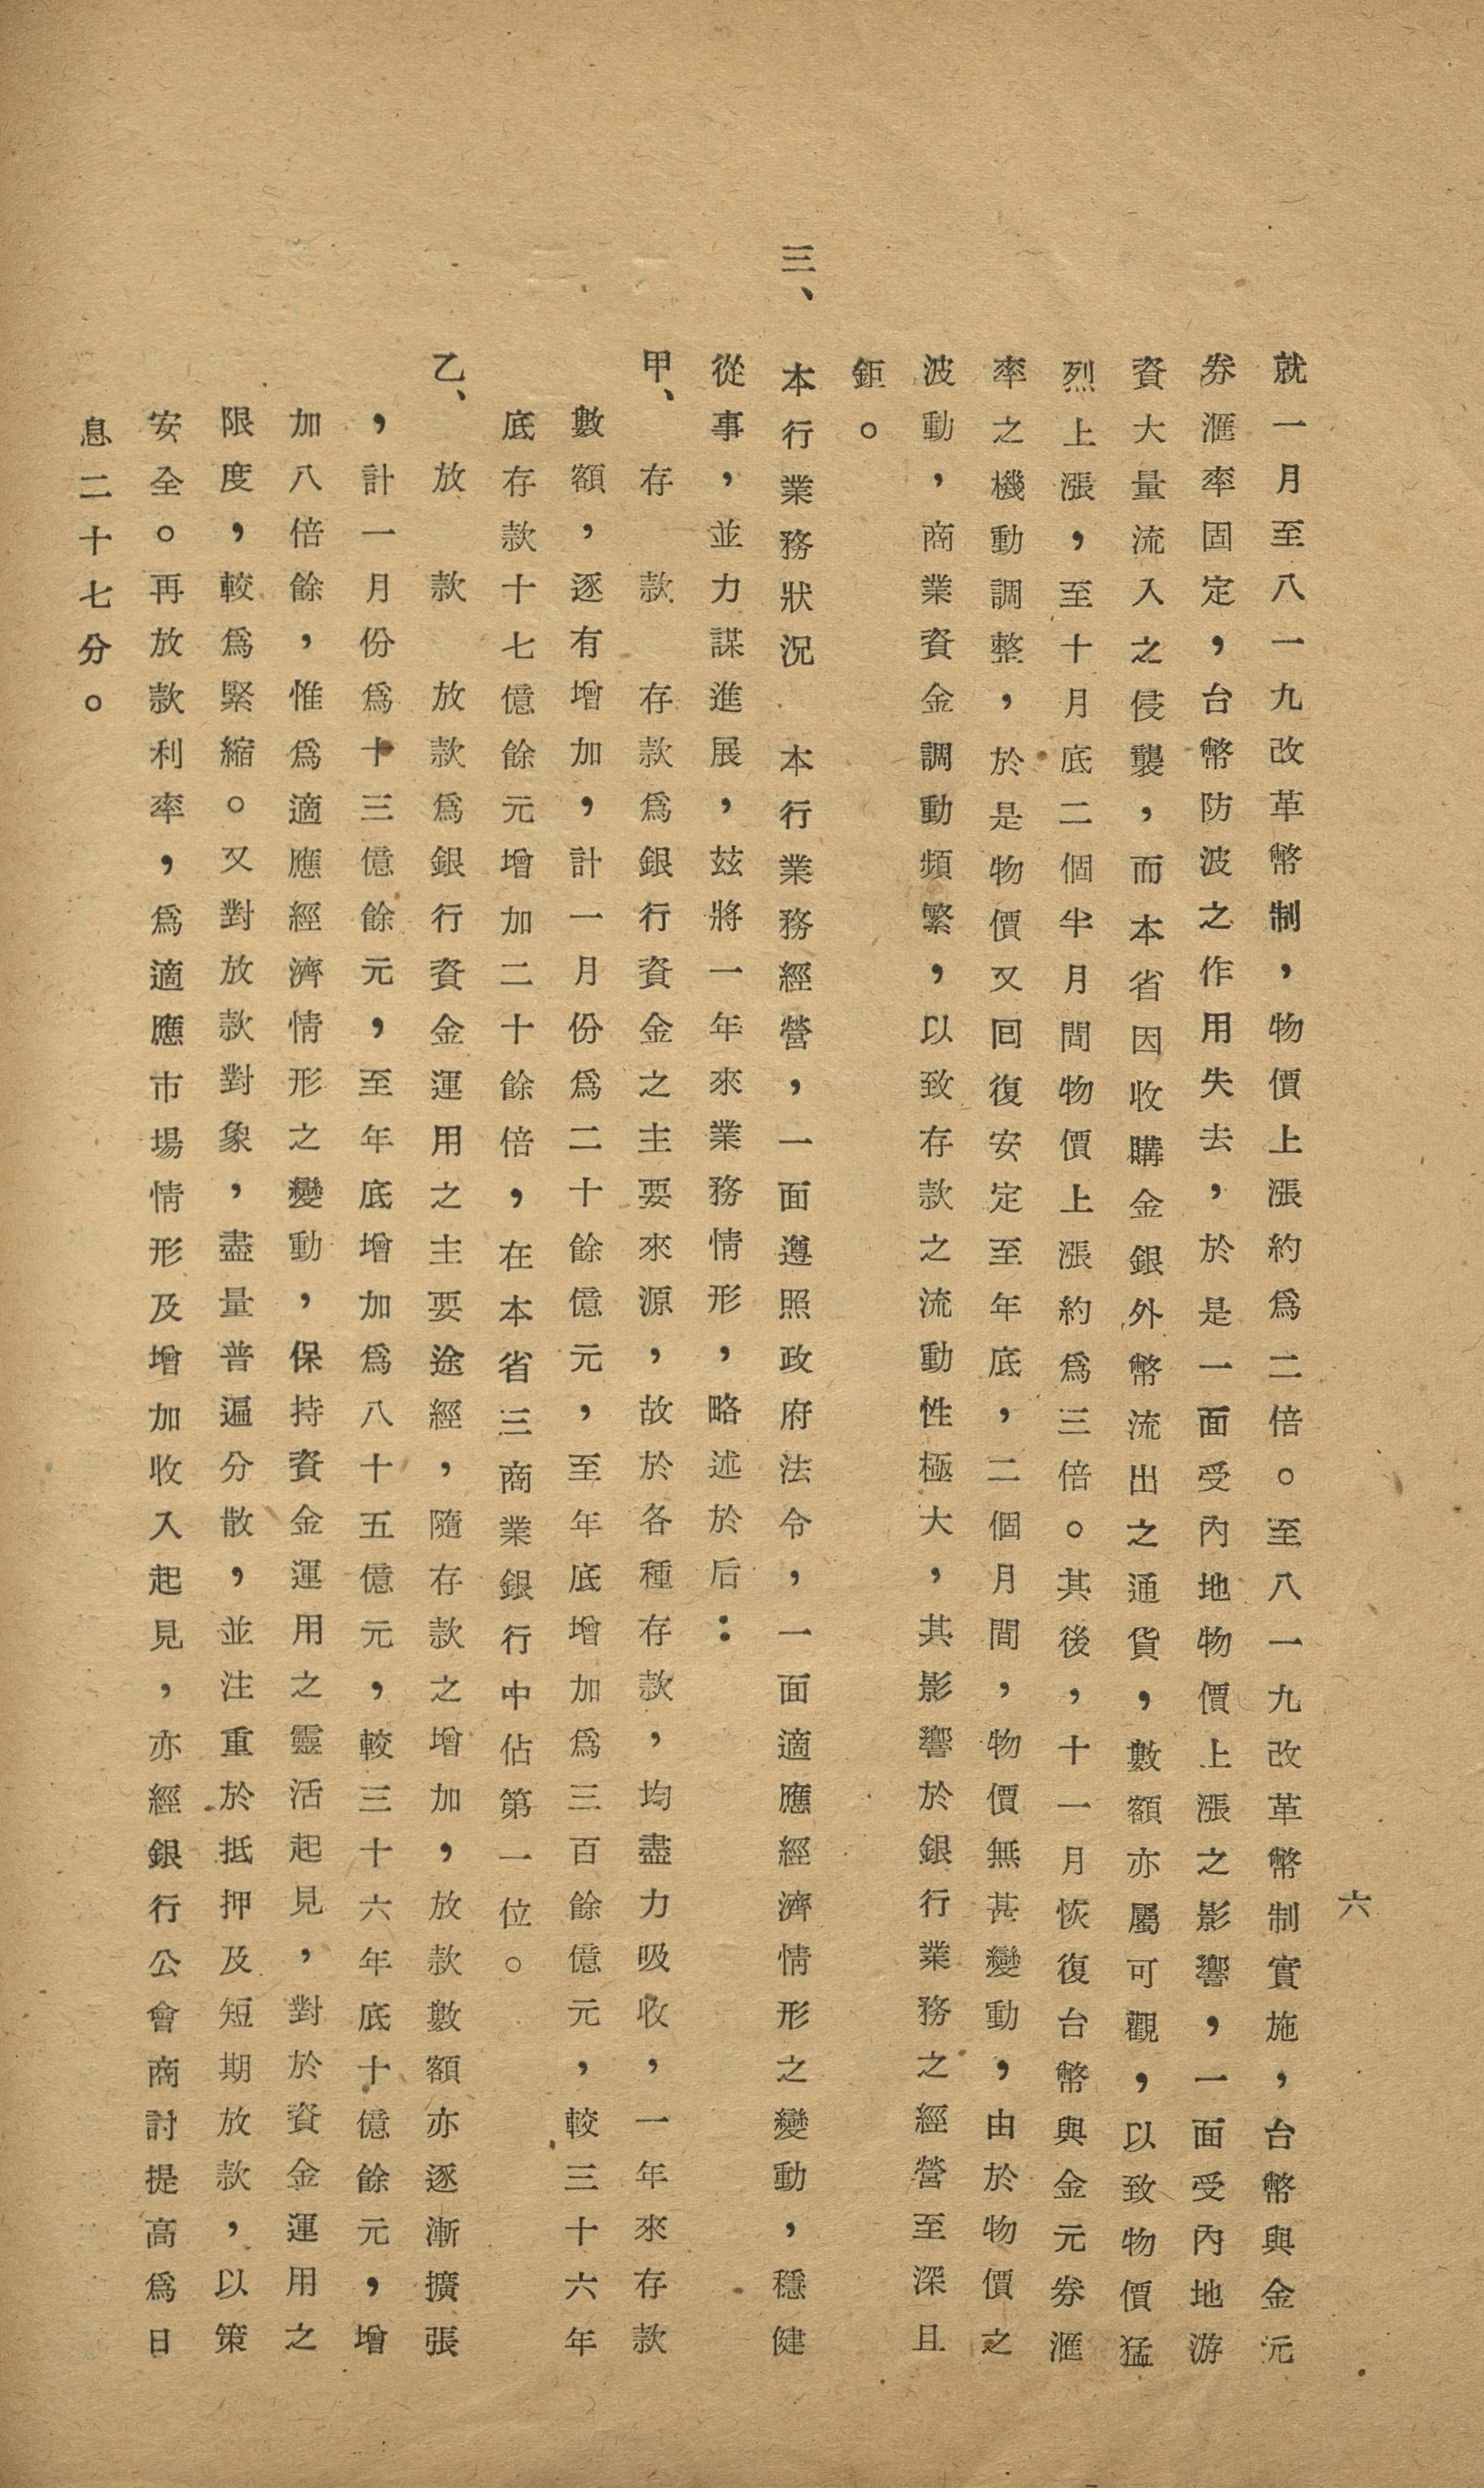 六
就一月至八一九改革幣制，物價上漲約爲二倍。至八一九改革幣制實施，台幣與金元
券滙率固定，台幣防波之作用失去，於是一面受內地物價上漲之影響，一面受內地游
資大量流入之侵襲，而本省因收購金銀外幣流出之通貨，數額亦屬可觀，以致物價猛
烈上漲，至十月底二個半月間物價上漲約爲三倍。其後，十一月恢復台幣與金元券滙
率之機動調整，於是物價又回復安定至年底，二個月間，物價無甚變動，由於物價之
波動，商業資金調動頻繁，以致存款之流動性極大，其影響於銀行業務之經營至深且
鉅。
三、本行業務狀況　本行業務經營，一面遵照政府法令，一面適應經濟情形之變動，穩健
從事，並力謀進展，玆將一年來業務情形，略述於后：
甲、存　款　存款爲銀行資金之主要來源，故於各種存款，均盡力吸收，一年來存款
數額，逐有增加，計一月份爲二十餘億元，至年底增加爲三百餘億元，較三十六年
底存款十七億餘元增加二十餘倍，在本省三商業銀行中佔第一位。
乙、放　款　放款爲銀行資金運用之主要途經，隨存款之增加，放款數額亦逐漸擴張
，計一月份爲十三億餘元，至年底增加爲八十五億元，較三十六年底十億餘元，增
加八倍餘，惟爲適應經濟情形之變動，保持資金運用之靈活起見，對於資金運用之
限度，較爲緊縮。又對放款對象，盡量普遍分散，並注重於抵押及短期放款，以策
安全。再放款利率，爲適應市場情形及增加收入起見，亦經銀行公會商討提高爲日
息二十七分。